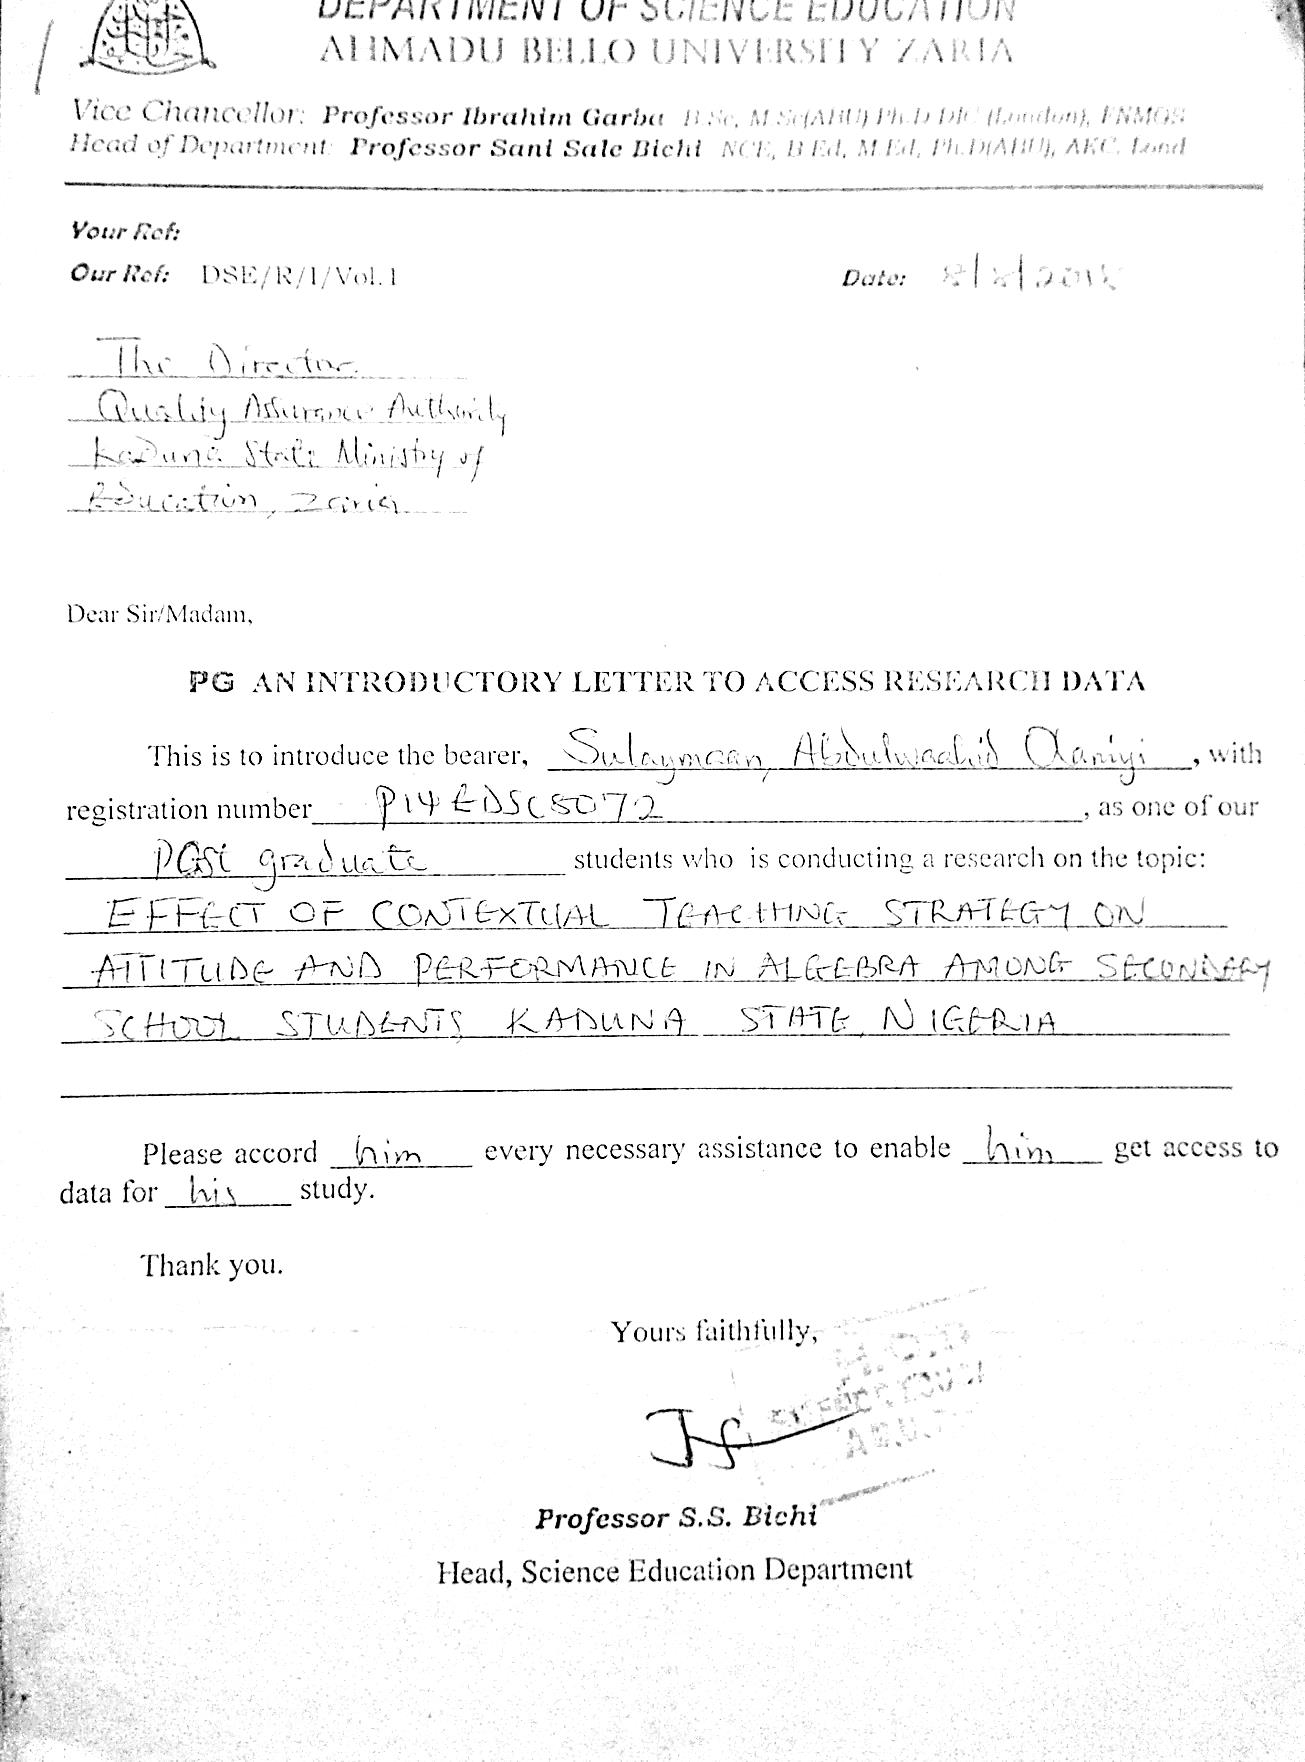 DEPARTMENT OF SCIENCE EDUCATION
AHMADU BELLO UNIVERSITY ZARIA
Vice Chancellor: Professor Ibrahim Garba B.Sc, M.Sc(ABU) Ph.D DIC (London), FNMGS
Head of Department: Professor Sani Sale Bichi NCE, B.Ed, M.Ed, Ph.D(ABU), AKC. Lond
Your Ref:
Our Ref: DSE/R/1/Vol.1 Date: 8/8/2018
The Director
Quality Assurance Authority
Kaduna State Ministry of
Education, Zaria
Dear Sir/Madam,
PG AN INTRODUCTORY LETTER TO ACCESS RESEARCH DATA
This is to introduce the bearer, Sulaymaan, Abdulwaahid Olaniyi, with
registration number P14EDSC8072, as one of our
POST graduate students who is conducting a research on the topic:
EFFECT OF CONTEXTUAL TEACHING STRATEGY ON
ATTITUDE AND PERFORMANCE IN ALGEBRA AMONG SECONDARY
SCHOOL STUDENTS KADUNA STATE, NIGERIA
Please accord him every necessary assistance to enable him get access to
data for his study.
Thank you.
Yours faithfully,
Professor S.S. Bichi
Head, Science Education Department